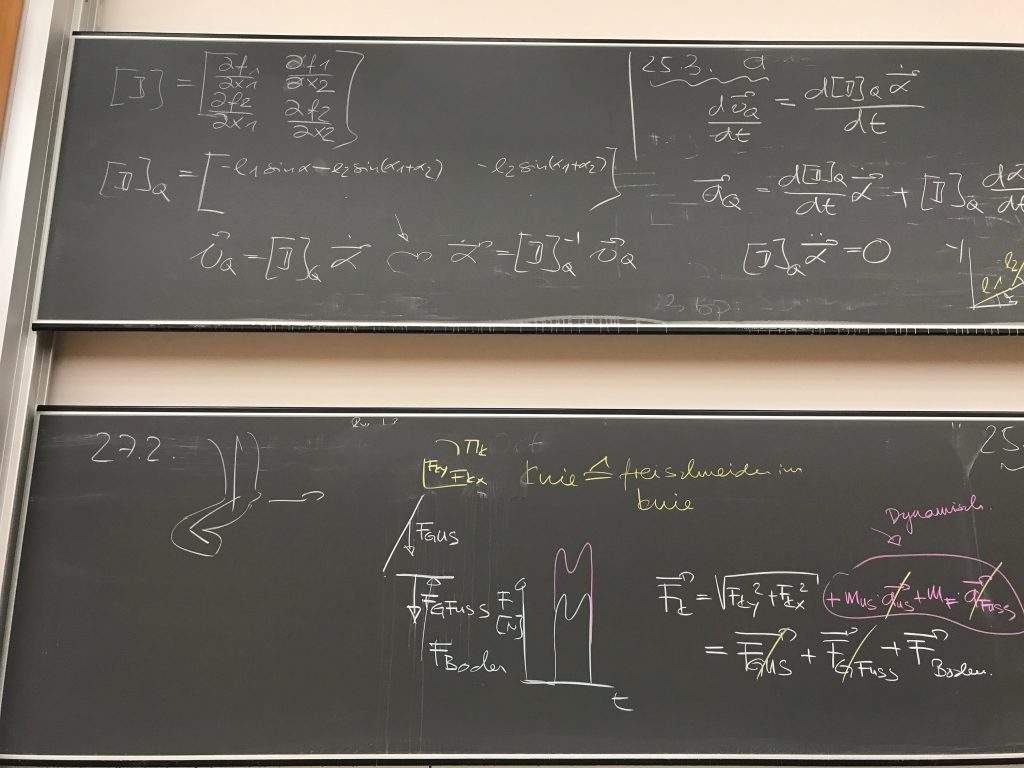 [J] = [∂f1/∂x1 ∂f1/∂x2
∂f2/∂x1 ∂f2/∂x2]
[J]Q = [-l1 sinα - l2 sin(α1+α2) - l2 sin(α1+α2)]
v⃗Q = [J]Q α̇⃗ α̇⃗ = [J]Q⁻¹ v⃗Q
25.3. a
dv⃗Q/dt = d[J]Q α̇⃗/dt
a⃗Q = d[J]Q/dt α̇⃗ + [J]Q dα̇
[J]Q α̈⃗ = 0
l2
l1
27.2.
MK
FKy FKx
Knie ≙ freischneiden im
Knie
FGUS
FGFuss
FBoden
F
[N]
t
25.
Dynamisch.
F⃗K = √(FKy² + FKx²) + mUS · a⃗US + mF · a⃗Fuss
= F⃗GUS + F⃗GFuss + F⃗Boden.